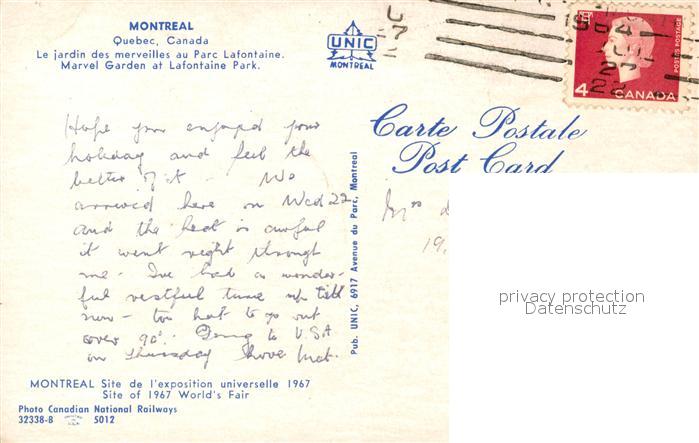 MONTREAL
Quebec, Canada
Le jardin des merveilles au Parc Lafontaine.
Marvel Garden at Lafontaine Park.
UNIC
MONTREAL
4
CANADA
POSTES POSTAGE
Carte Postale
Post Card
Hope you enjoyed your
holiday and feel the
better of it - We
arrived here on Wed 22
and the heat is awful
it went right through
me - I've had a wonder-
ful restful time up till
now - too hot to go out
over 90°. Going to U.S.A.
on Thursday
Mrs
19.
Pub. UNIC, 6917 Avenue du Parc, Montreal
privacy protection
Datenschutz
MONTREAL Site de l'exposition universelle 1967
Site of 1967 World's Fair
Photo Canadian National Railways
32338-B 5012